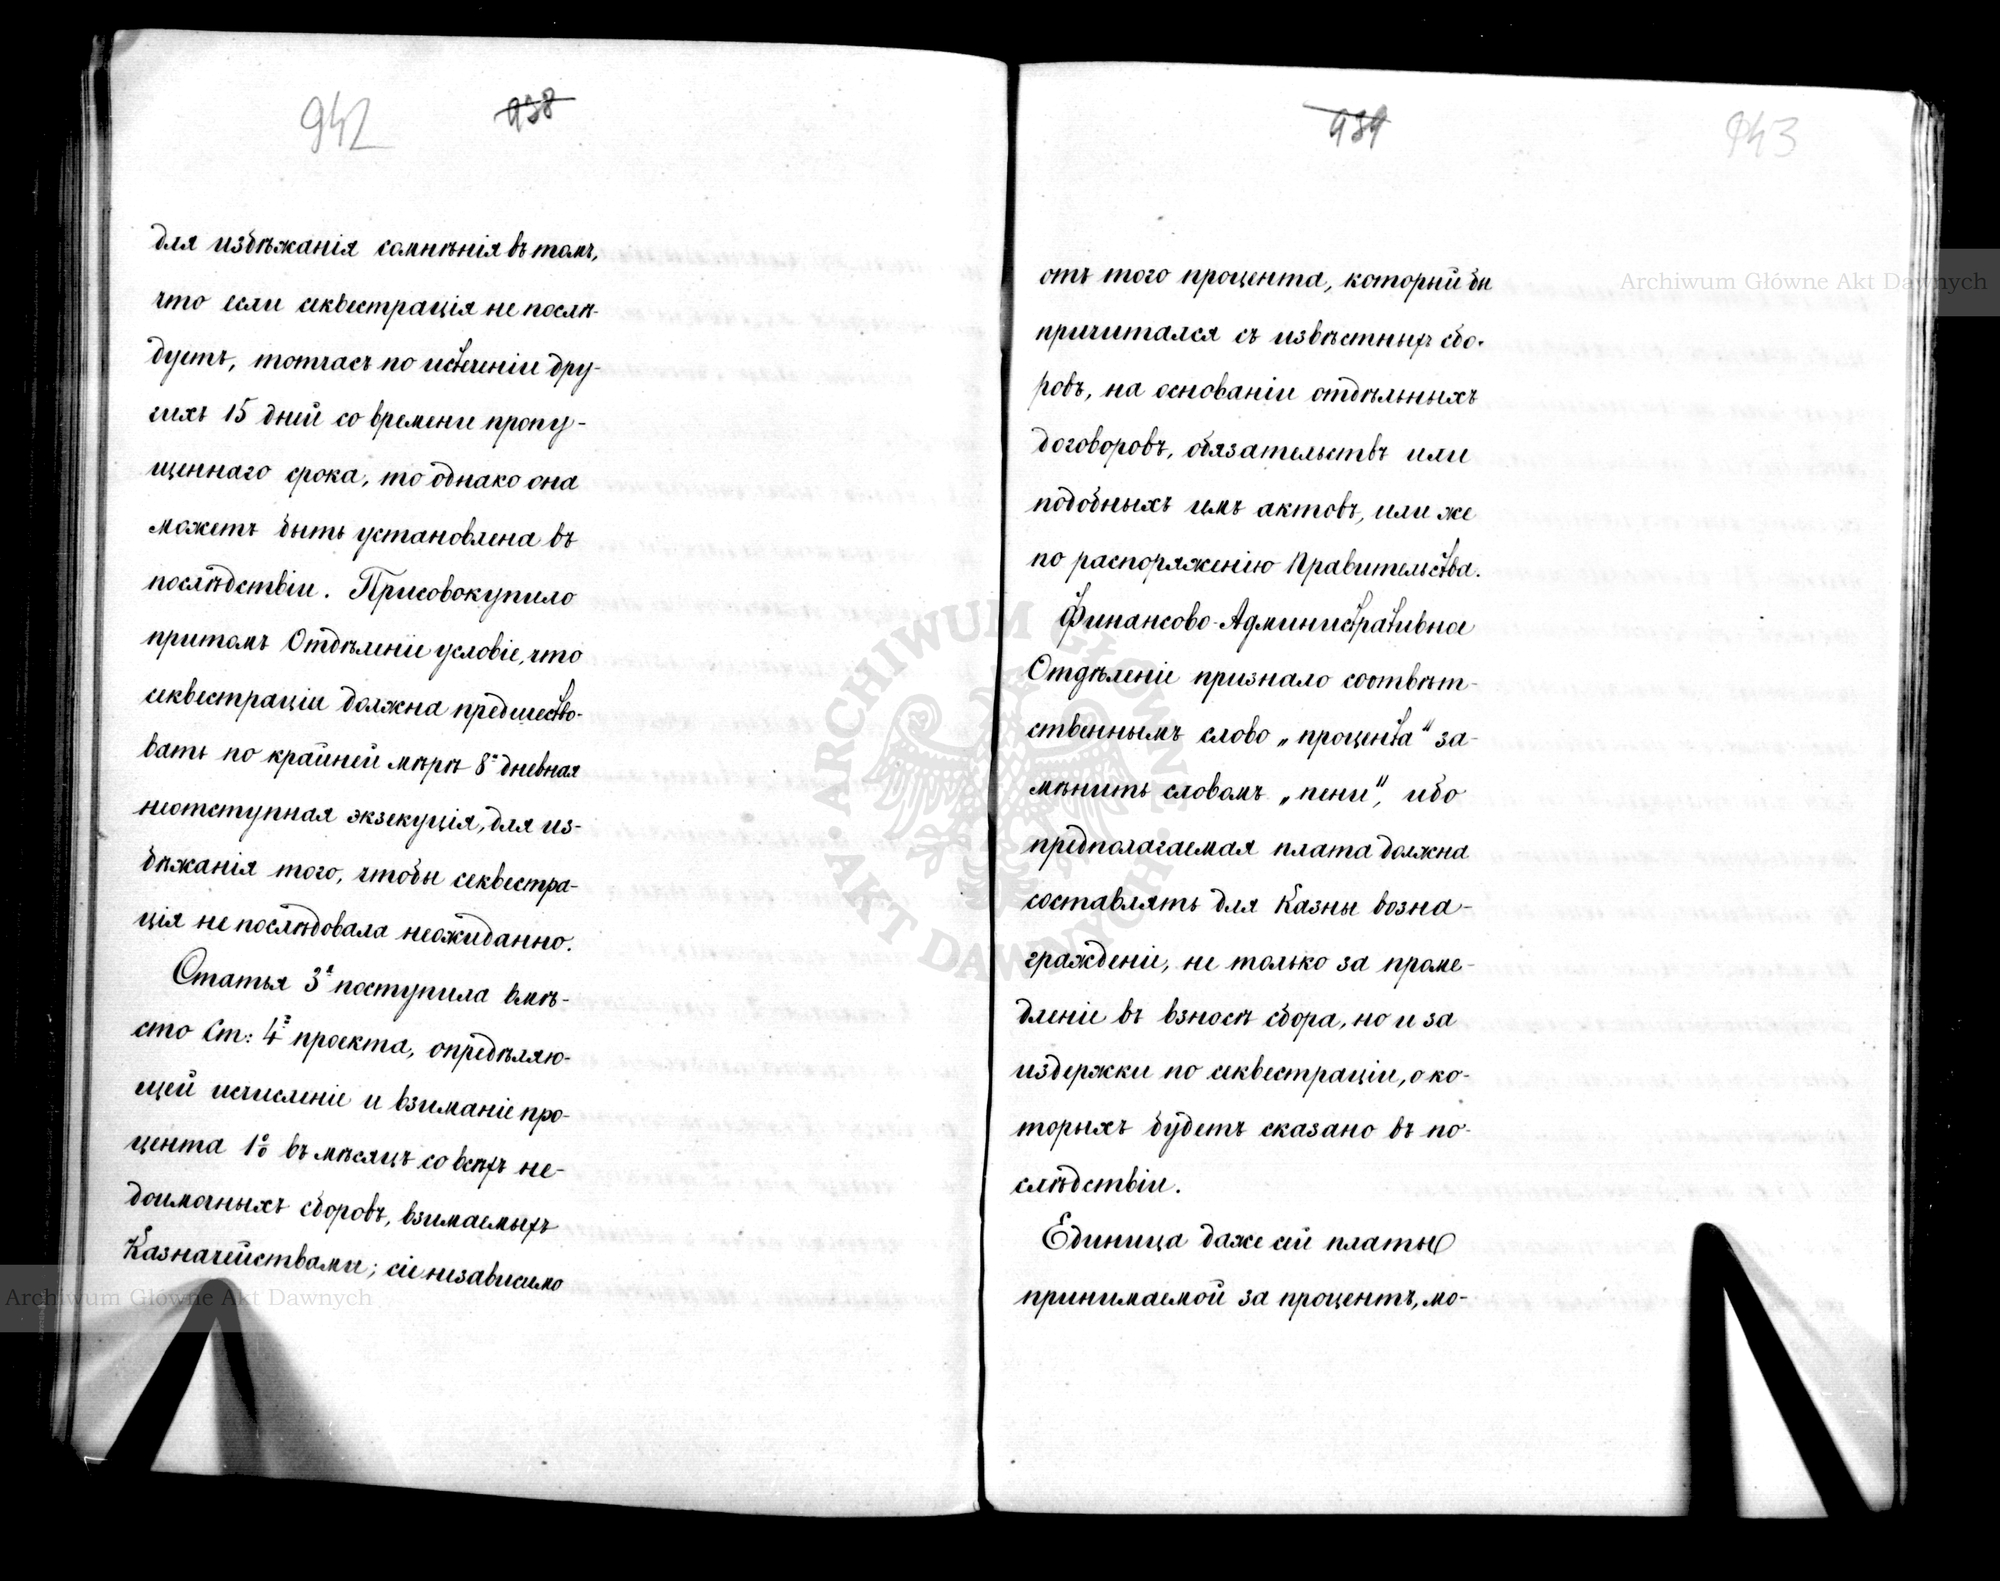 942 938
для избѣжанія сомнѣнія въ томъ,
что если секвестрація не послѣ-
дуетъ, тотчасъ по истеченіи дру-
гихъ 15 дней со времени пропу-
щеннаго срока, то однако она
можетъ быть установлена въ
послѣдствіи. Присовокупило
притомъ Отдѣленіе условіе, что
секвестраціи должна предшество-
вать по крайней мѣрѣ 8ᵐⁱ дневная
неотступная экзекуція, для из-
бѣжанія того, чтобы секвестра-
ція не послѣдовала неожиданно.
Статья 3ª поступила вмѣ-
сто Ст: 4й проекта, опредѣляю-
щей исчисленіе и взиманіе про-
цента 1% въ мѣсяцъ со всѣхъ не-
доимочныхъ сборовъ, взимаемыхъ
Казначействами; сіе независимо
939 943
отъ того процента, который бы
причитался съ извѣстныхъ сбо-
ровъ, на основаніи отдѣльныхъ
договоровъ, обязательствъ или
подобныхъ имъ актовъ, или же
по распоряженію Правительства.
Финансово-Административное
Отдѣленіе признало соотвѣт-
ственнымъ слово „процента" за-
мѣнить словомъ „пени", ибо
предполагаемая плата должна
составлять для Казны возна-
гражденіе, не только за проме-
дленіе въ взносѣ сбора, но и за
издержки по секвестраціи, о ко-
торыхъ будетъ сказано въ по-
слѣдствіи.
Единица даже сей платы
принимаемой за процентъ, мо-
Archiwum Główne Akt Dawnych
Archiwum Główne Akt Dawnych
ARCHIWUM GŁÓWNE AKT DAWNYCH